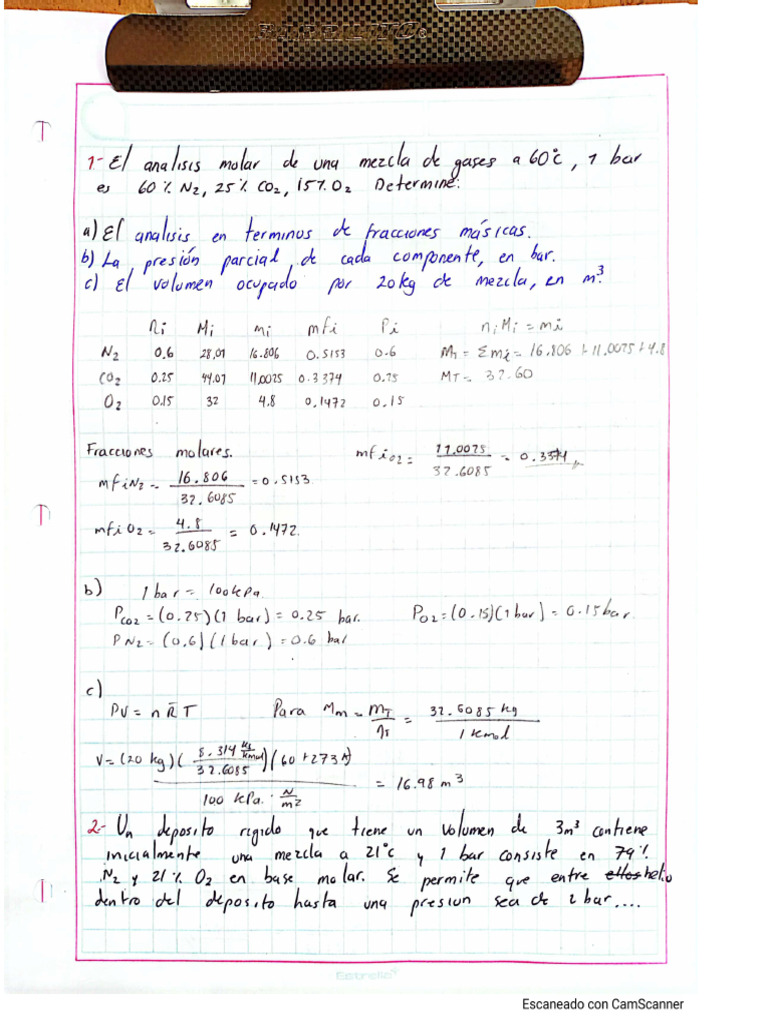 BARRILITO®
1.- El analisis molar de una mezcla de gases a 60°c, 1 bar
es 60% N2, 25% CO2, 15% O2 Determine:
a) El analisis en terminos de fracciones másicas.
b) La presión parcial de cada componente, en bar.
c) El volumen ocupado por 20kg de mezcla, en m³.
ni Mi mi mfi Pi niMi = mi
N2 0.6 28.01 16.806 0.5153 0.6 MT = Σmi = 16.806 + 11.0025 + 4.8
CO2 0.25 44.01 11.0025 0.3374 0.25 MT = 32.60
O2 0.15 32 4.8 0.1472 0.15
Fracciones molares. mfiO2 = 11.0025 / 32.6085 = 0.3374
mfiN2 = 16.806 / 32.6085 = 0.5153
mfiO2 = 4.8 / 32.6085 = 0.1472
b) 1 bar = 100kPa.
PCO2 = (0.25)(1 bar) = 0.25 bar. PO2 = (0.15)(1 bar) = 0.15 bar.
PN2 = (0.6)(1 bar) = 0.6 bar
c)
PV = n R̄ T Para Mm = MT / = 32.6085 kg / 1 kmol
V = (20 kg)(8.314 / 32.6085)(60+273 K) / 100 kPa · N/m² = 16.98 m³
2.- Un deposito rigido que tiene un volumen de 3m³ contiene
inicialmente una mezcla a 21°c y 1 bar consiste en 79%
N2 y 21% O2 en base molar. Se permite que entre helio
dentro del deposito hasta una presion sea de 2 bar....
Estrella
Escaneado con CamScanner